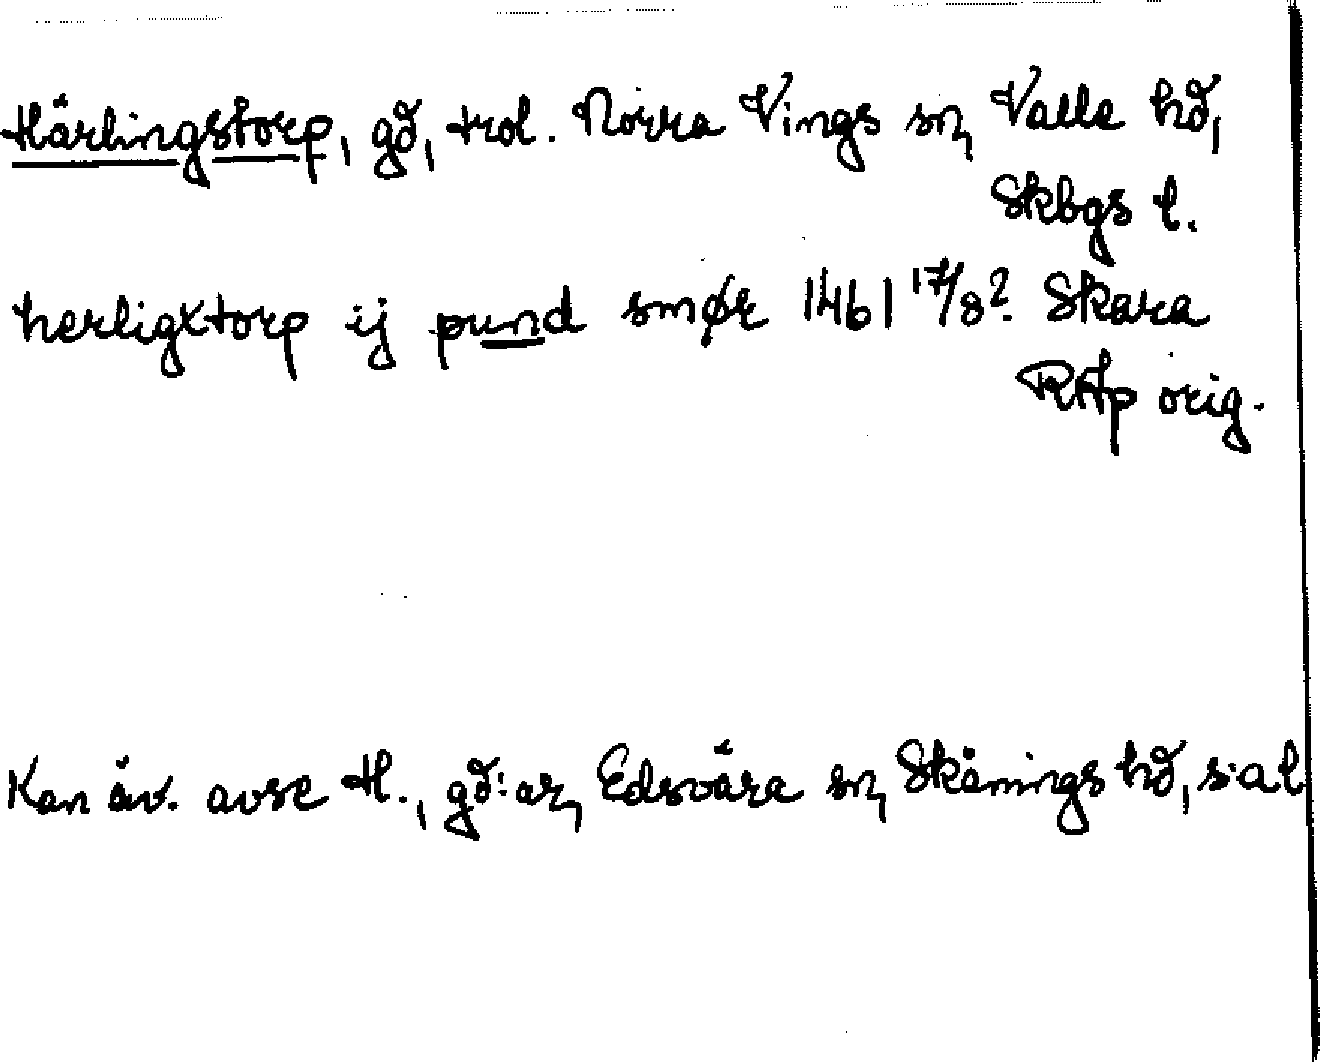 Härlingstorp, gd, trol. Norra Vings sn, Valle hd,
Skbgs l.
herligxtorp ij pund smør 1461 17/8? Skara
RAp orig.
Kan äv. avse H., gd:ar, Edsvära sn, Skånings hd, s:a l